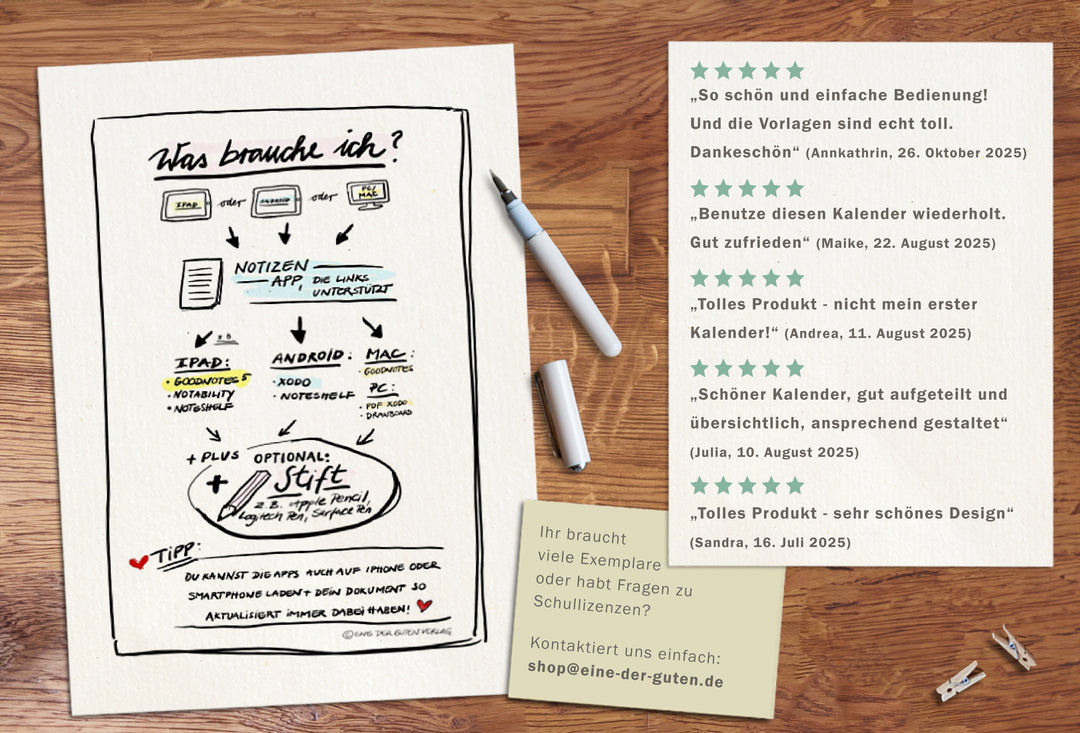 Was brauche ich?
IPAD oder ANDROID oder PC/ MAC
NOTIZEN
APP, DIE LINKS
UNTERSTÜTZT
z.B.
IPAD:
• GOODNOTES 5
• NOTABILITY
• NOTESHELF
ANDROID:
• XODO
• NOTESHELF
MAC:
• GOODNOTES
PC:
• PDF XODO
• DRAWBOARD
+ PLUS OPTIONAL:
+ Stift
z.B. Apple Pencil,
Logitech Pen, Surface Pen
TIPP:
DU KANNST DIE APPS AUCH AUF IPHONE ODER
SMARTPHONE LADEN + DEIN DOKUMENT SO
AKTUALISIERT IMMER DABEI HABEN!
© EINE DER GUTEN VERLAG
„So schön und einfache Bedienung!
Und die Vorlagen sind echt toll.
Dankeschön“ (Annkathrin, 26. Oktober 2025)
„Benutze diesen Kalender wiederholt.
Gut zufrieden“ (Maike, 22. August 2025)
„Tolles Produkt - nicht mein erster
Kalender!“ (Andrea, 11. August 2025)
„Schöner Kalender, gut aufgeteilt und
übersichtlich, ansprechend gestaltet“
(Julia, 10. August 2025)
„Tolles Produkt - sehr schönes Design“
(Sandra, 16. Juli 2025)
Ihr braucht
viele Exemplare
oder habt Fragen zu
Schullizenzen?
Kontaktiert uns einfach:
shop@eine-der-guten.de